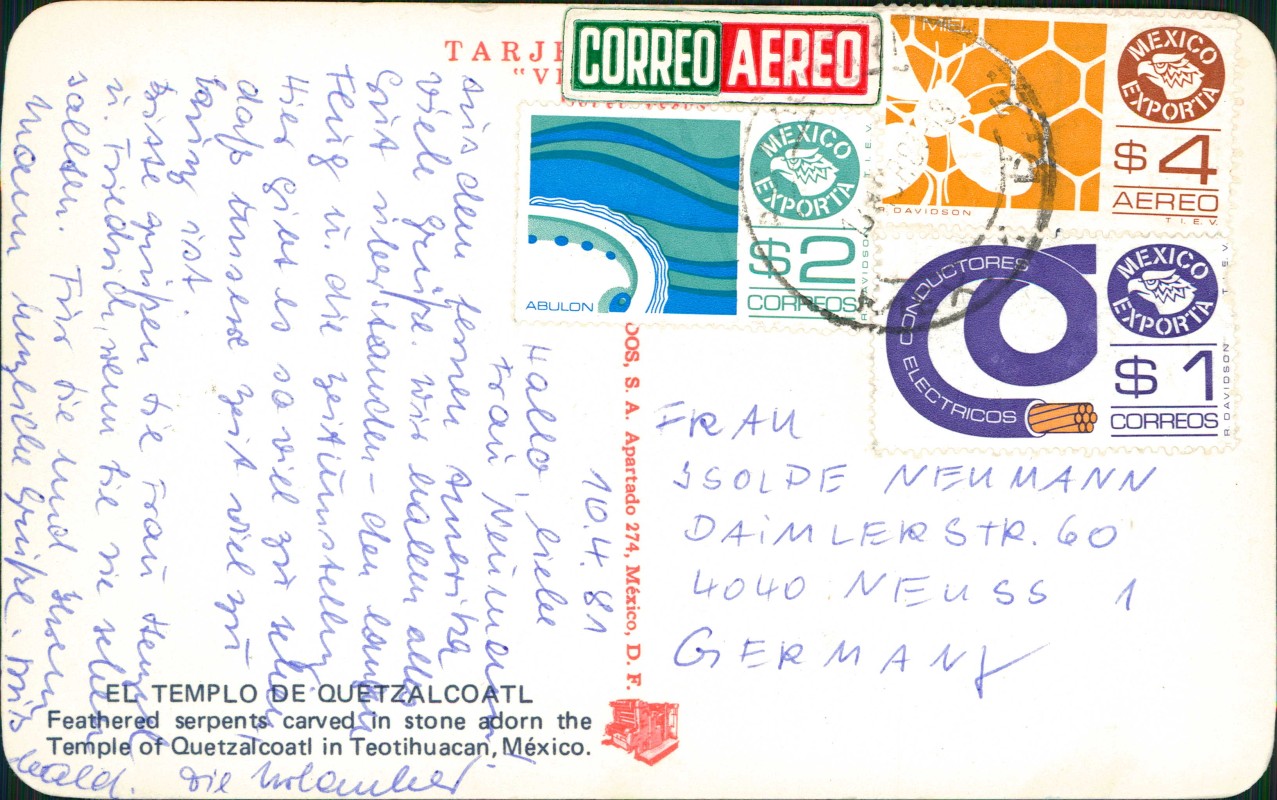 TARJE
"VI
CORREO AEREO
MIEL
MEXICO EXPORTA
$4
AEREO
T.I.E.V.
R. DAVIDSON
MEXICO EXPORTA
$2
CORREOS
ABULON
R. DAVIDSON T.I.E.V.
CONDUCTORES ELECTRICOS
MEXICO EXPORTA
$1
CORREOS
R. DAVIDSON T.I.E.V.
10.4.81
Hallo liebe
Frau Neumann!
Aus dem fernen Amerika
viele Grüße. Wir haben alles
Gut überstanden - den langen
Flug u. die Zeitumstellung.
Hier gibt es so viel zu sehen,
daß unsere Zeit viel zu
kurz ist.
Bitte grüßen Sie Frau
u. Friedrich, wenn Sie sie sehen
sollten. Für Sie und Ihren
Mann herzliche Grüße. Bis
bald. Die Urlauber
DOS, S. A. Apartado 274, México, D. F.
FRAU
ISOLDE NEUMANN
DAIMLERSTR. 60
4040 NEUSS 1
GERMANY
EL TEMPLO DE QUETZALCOATL
Feathered serpents carved in stone adorn the
Temple of Quetzalcoatl in Teotihuacan, México.